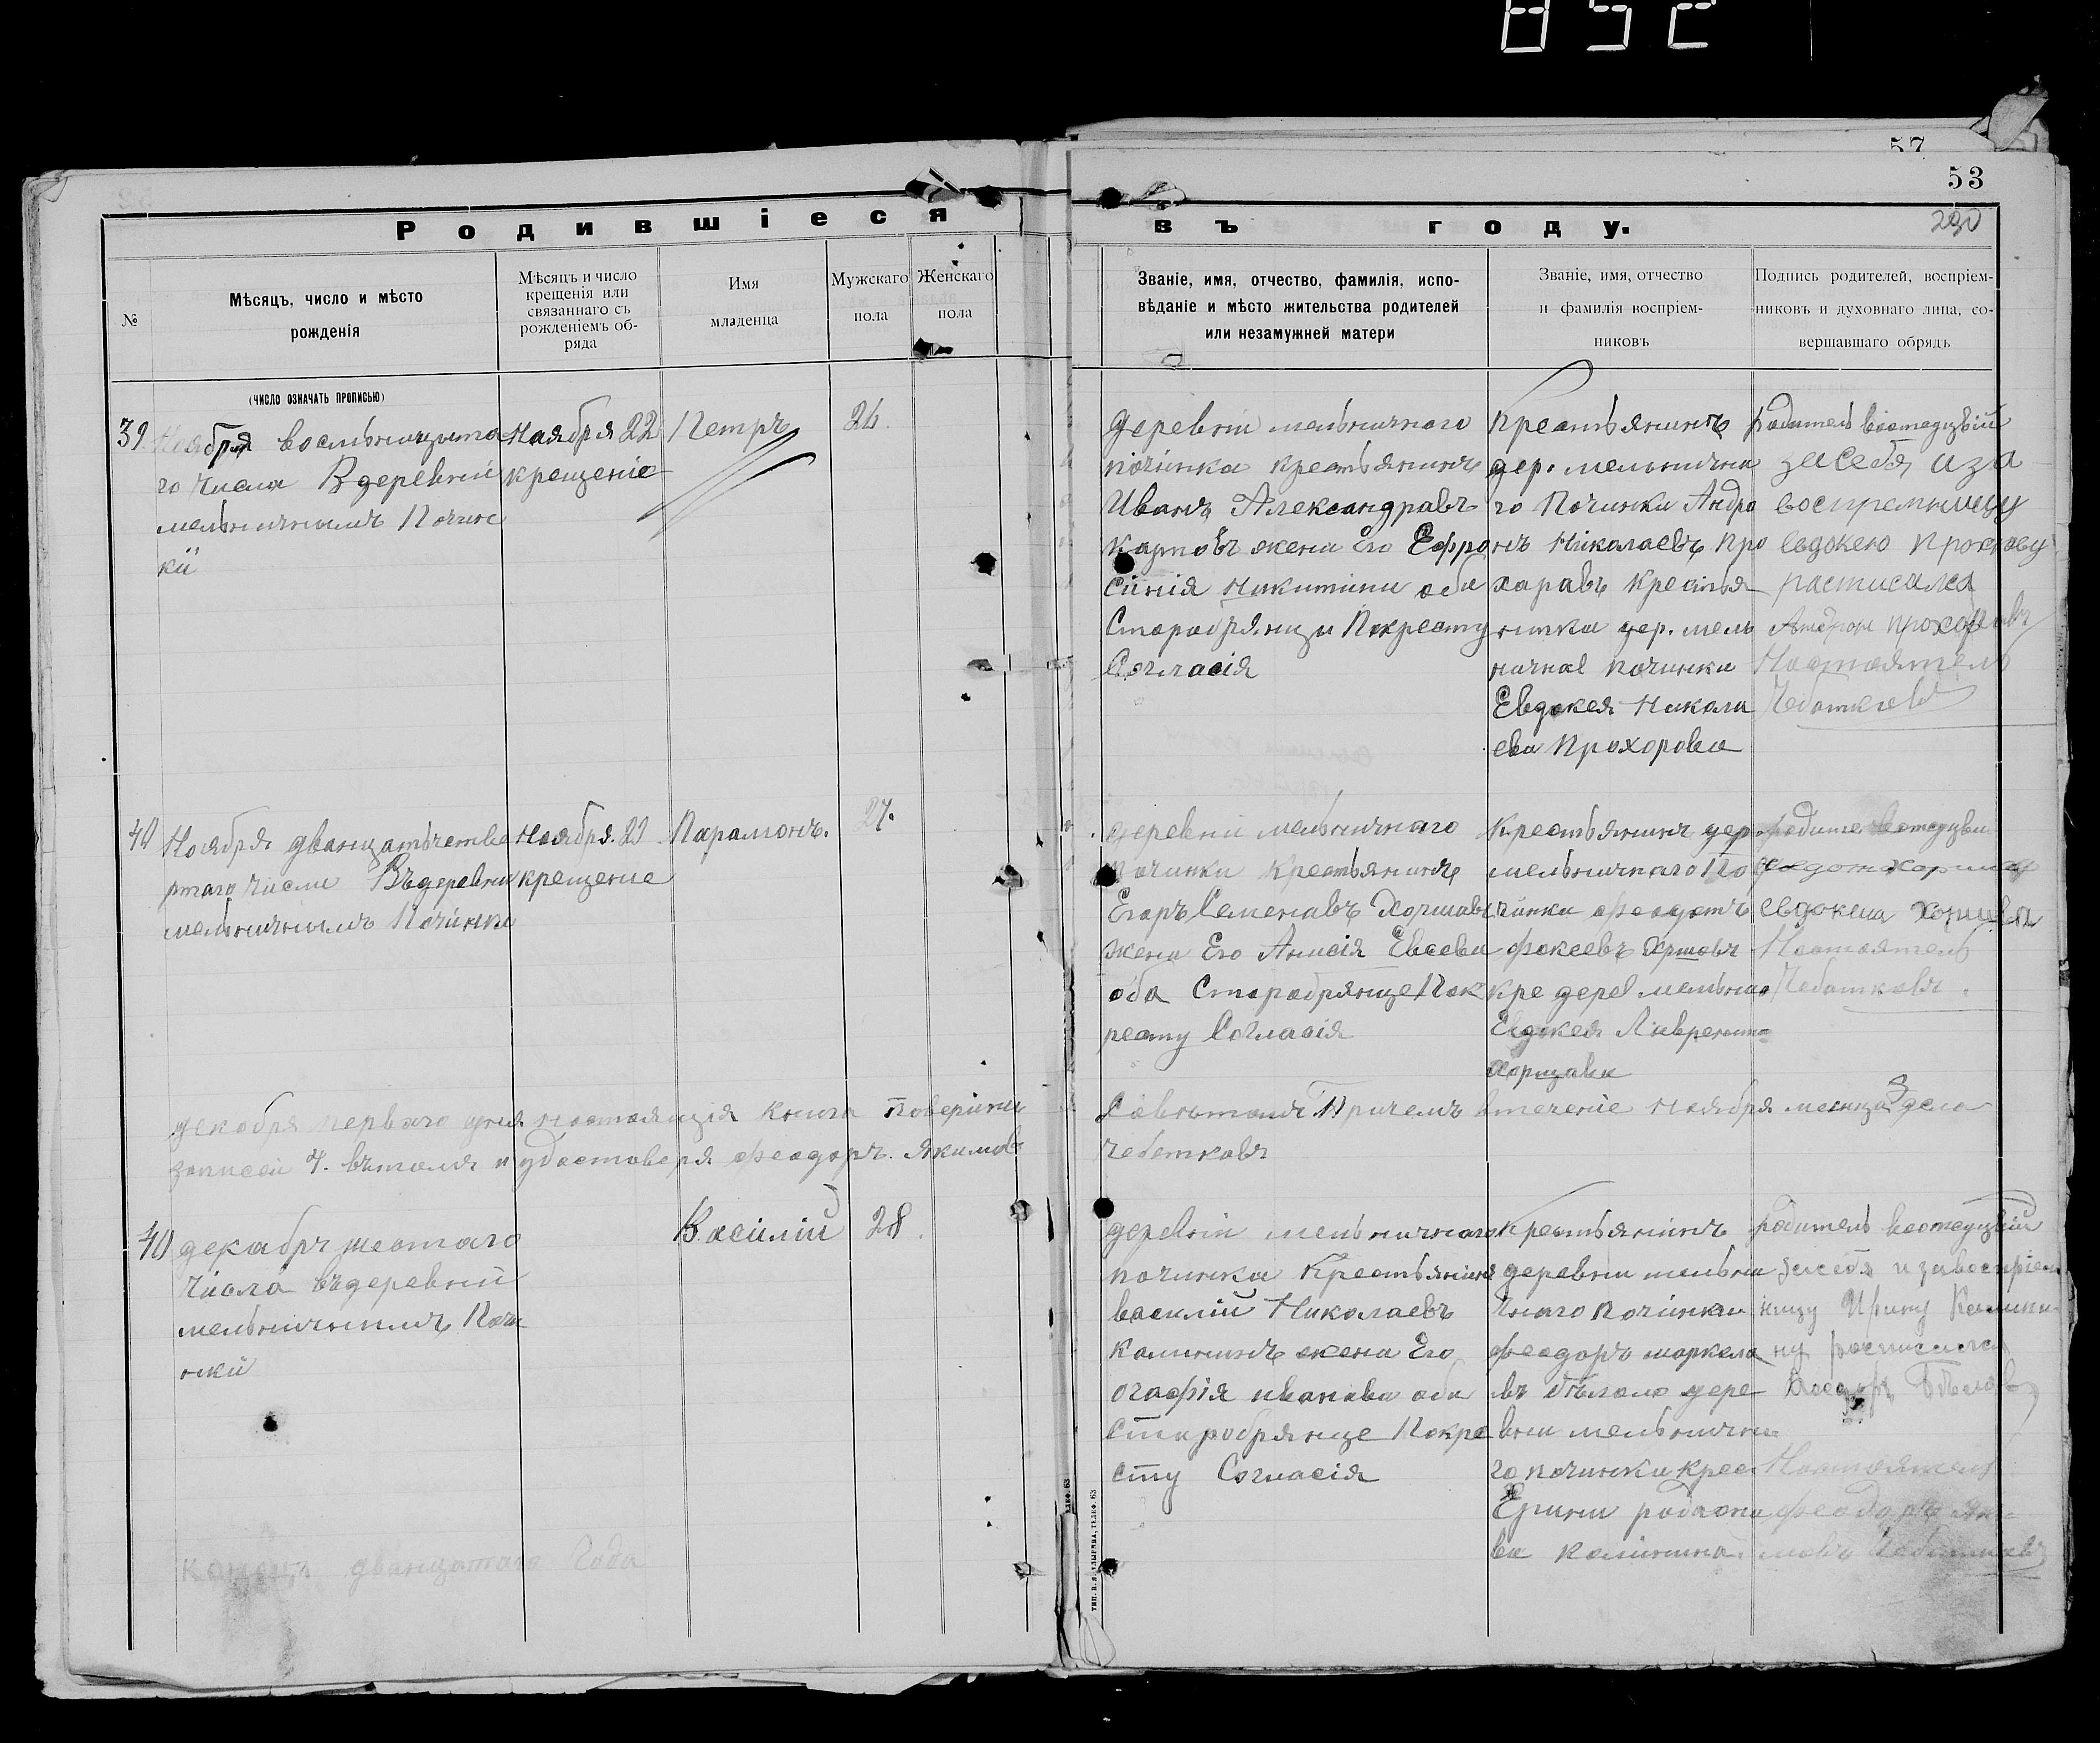 852
57
53
290
Родившіеся
въ году.
№
Мѣсяцъ, число и мѣсто
рожденія
Мѣсяцъ и число
крещенія или
связаннаго съ
рожденіемъ об-
ряда
Имя
младенца
Мужскаго
пола
Женскаго
пола
Званіе, имя, отчество, фамилія, испо-
вѣданіе и мѣсто жительства родителей
или незамужней матери
Званіе, имя, отчество
и фамилія воспріем-
никовъ
Подпись родителей, воспріем-
никовъ и духовнаго лица, со-
вершавшаго обрядъ
(ЧИСЛО ОЗНАЧАТЬ ПРОПИСЬЮ)
39
Ноября
го числа В деревніи
мельничнымъ Почин
кй
Ноября 22
крещеніе
Петръ
26.
деревніи мельничнаго
починка крестьянинъ
Иванъ Александравъ
жена Его Ефро
синія Никитина оба
Старобрянцы Покресту
Согласія
Крестьянинъ
дер. мельнична
го Починка Андро
нъ Николаевъ Про
харавъ крестья
нинка дер. мель
ничнае починка
Евдокея Никола
ева Прохорова
родитель
засебя иза
Евдокею
расписался
Андрон прохоравъ
Настоятель
Чеботковъ
40
Ноября
ртаго числа Въдеревни
мельничнымъ Починки
Ноября.
крещение
Парамонъ.
27.
деревніи мельничнаго
Починка Крестьянинъ
Егоръ Семенавъ Хоршавъ
жена Его Анисія Евсеева
оба Старобрянце Пок
ресту Согласія
Крестьянинъ дер.
мельничнаго По
чинки Феодотъ
фокеевъ
кре дерев
Евдокея
Хоршава
Евдокеиа
Настоятель
Чеботковъ.
декабря перваго дня настоящія книга поверіни
записей 4. въ томъ и удостоверя феодоръ. Якимовъ
Причемъ втечение Ноября месица
Чеботковъ
40
декабръ шестаго
числа въдеревній
мельничнымъ Почи
нкй
Васілій
28.
деревніи мельничнаго
починка Крестьянинъ
василій Николаевъ
Калининъ жена Его
огафія иванава оба
Старобрянце Покре
сту Согласія
Крестьянинъ
деревни мельни
чнаго починки
феодоръ маркела
въ дере
вни мельнични
го починки крес
Ерини родиона
ва Калинина
родитель
засебя
ницу Ирину Калини
ну расписался
Настоятель
феодоръ яки-
мовъ Чеботковъ
конецъ дванцатаго Года